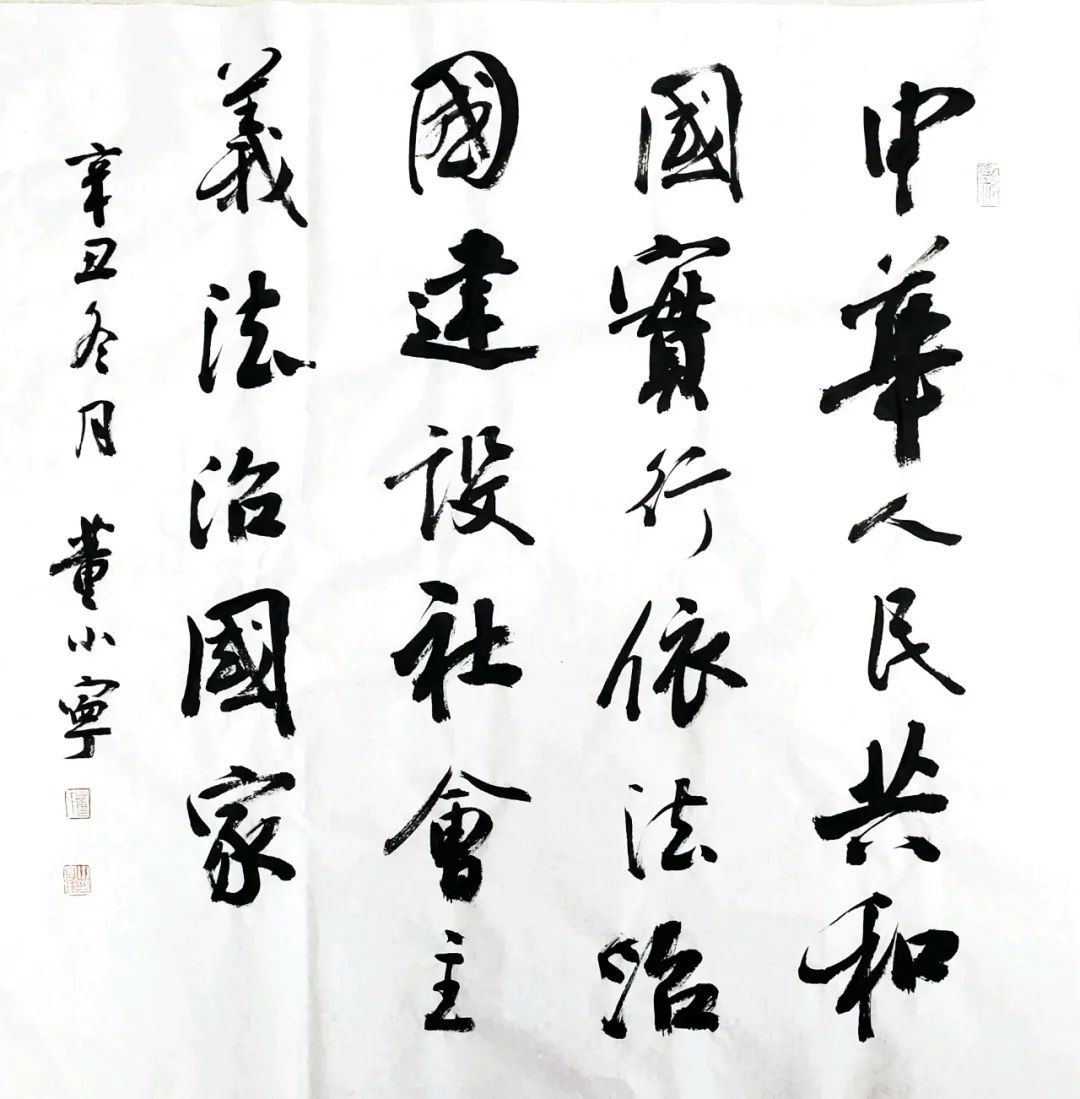 中華人民共和
國實行依法治
國建設社會主
義法治國家
辛丑冬月 董小寧